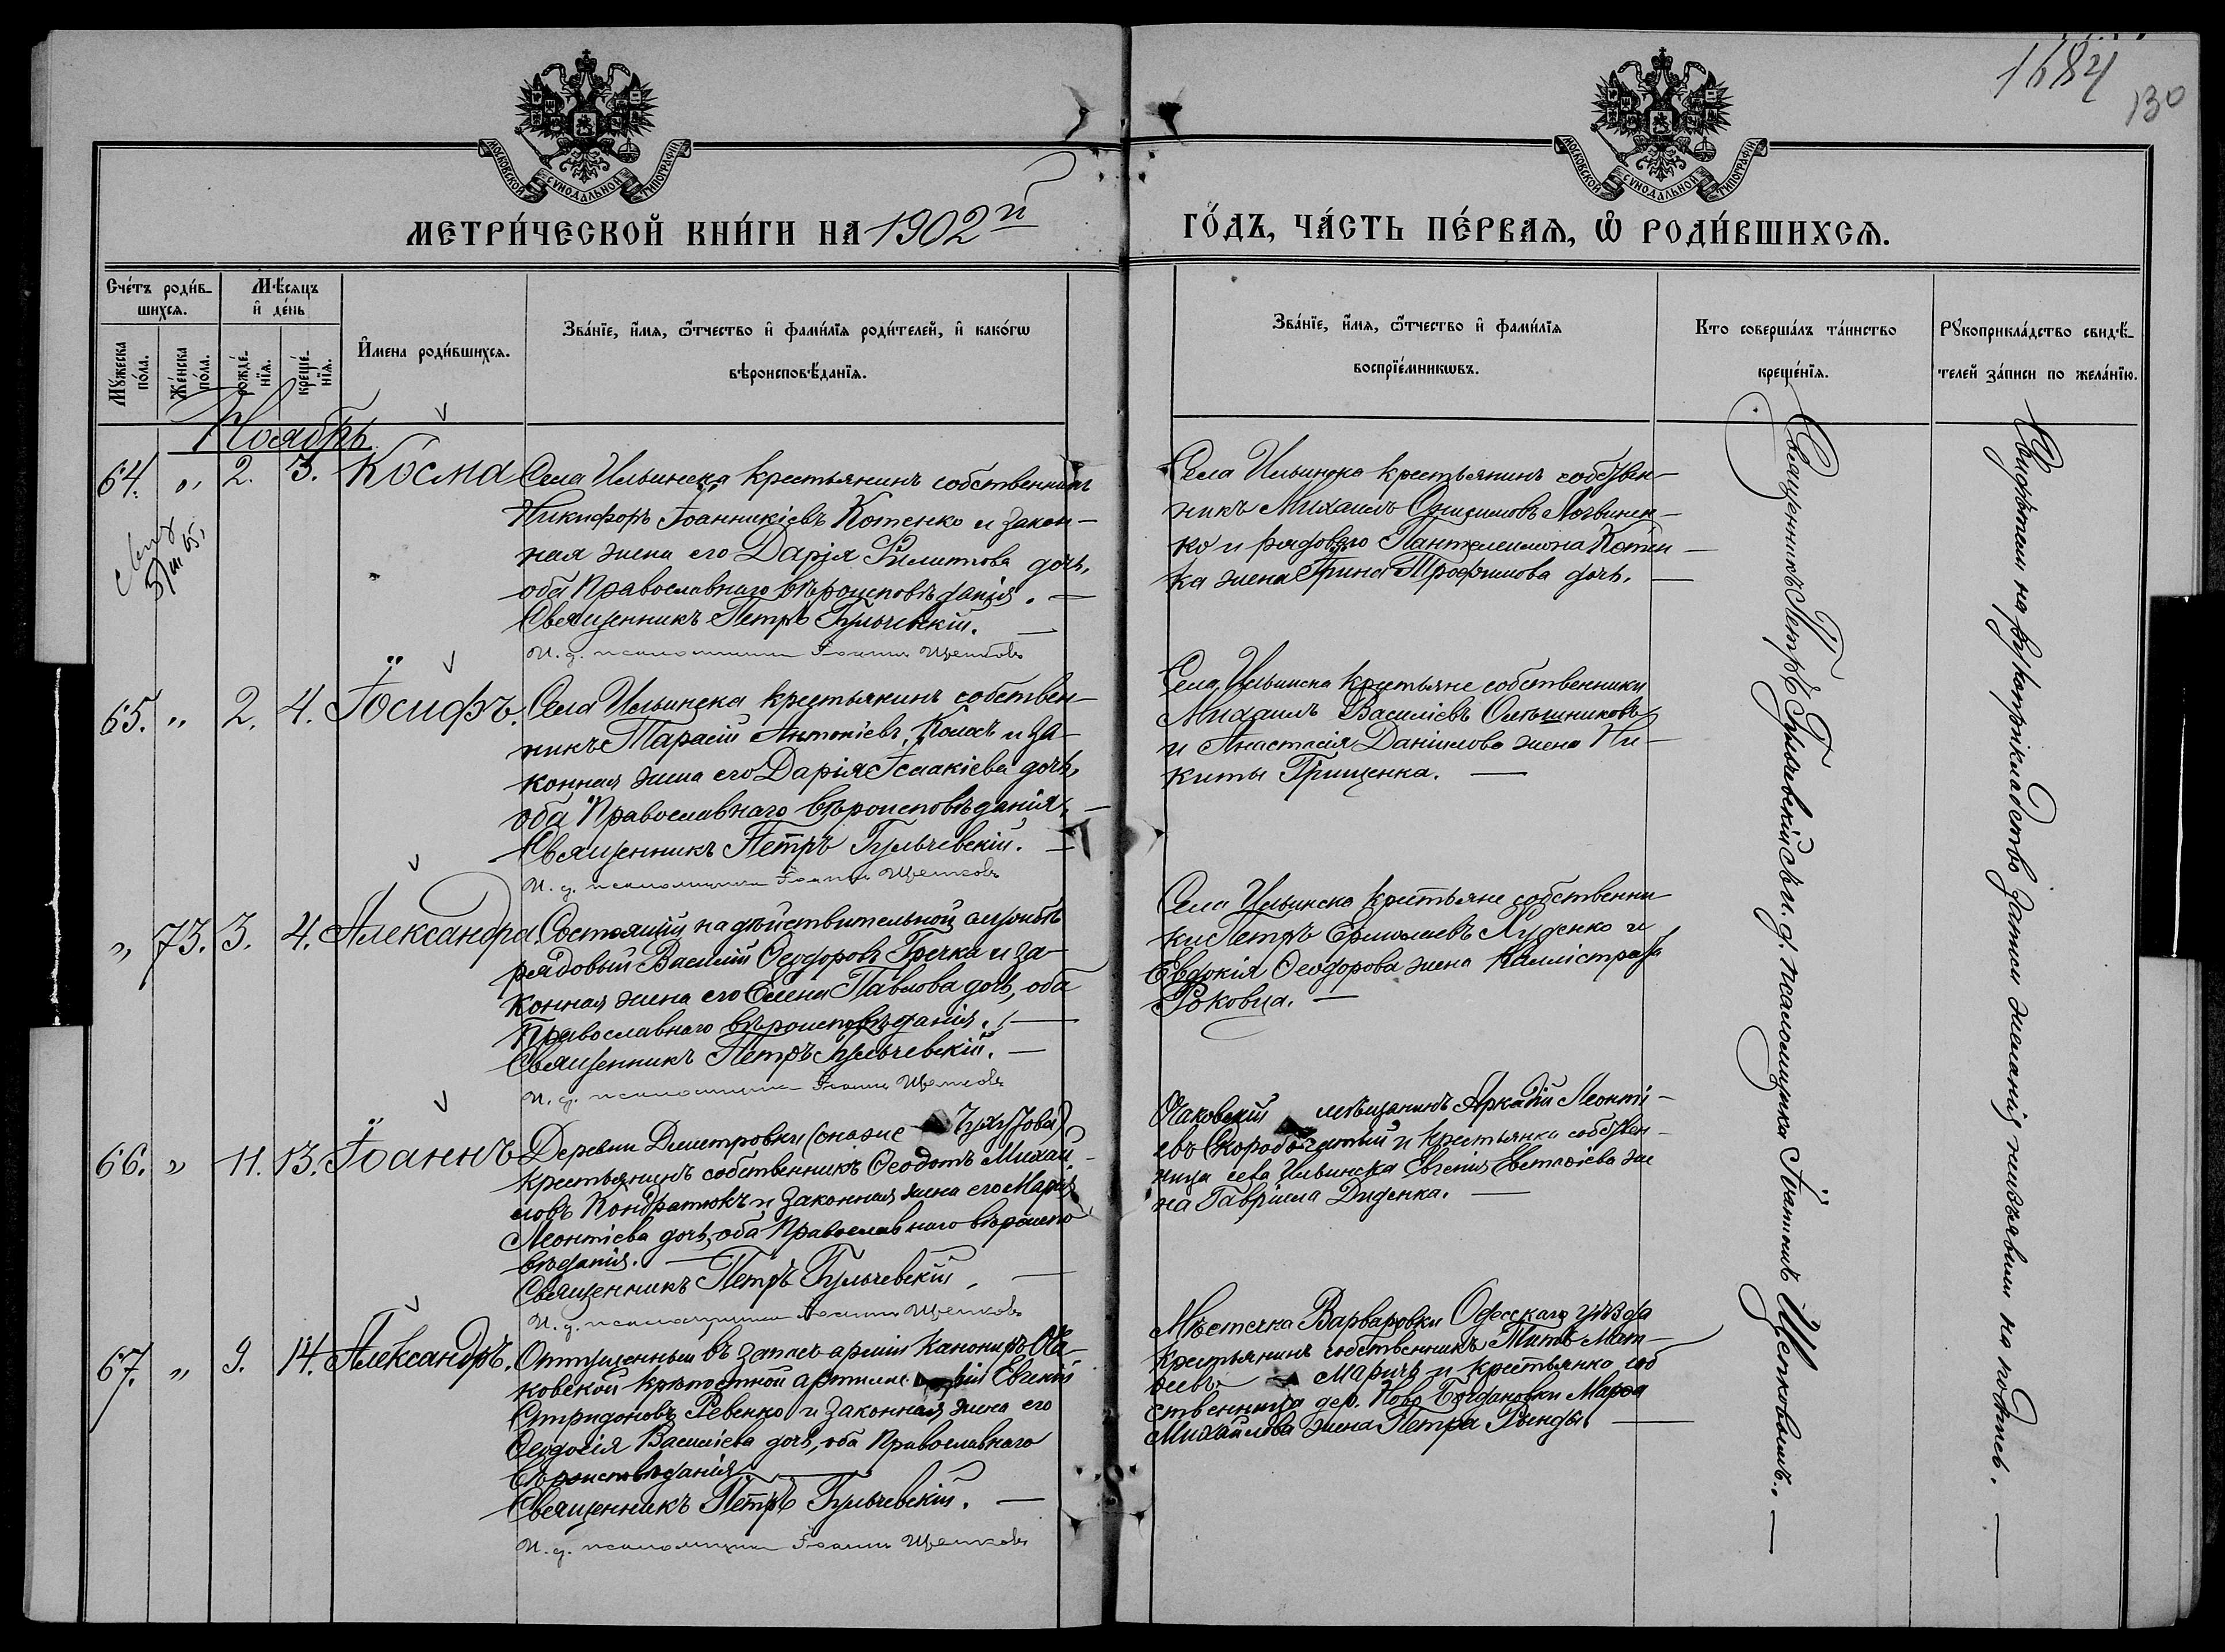 1684
130
МОСКОВСКОЙ СѴНОДАЛЬНОЙ ТИПОГРАФІИ
МОСКОВСКОЙ СѴНОДАЛЬНОЙ ТИПОГРАФІИ
МЕТРИ́ЧЕСКОЙ КНИ́ГИ НА 1902й
ГО́ДЪ, ЧА́СТЬ ПЕ́РВАЯ, Ѡ РОДИ́ВШИХСЯ.
Сче́тъ роди́в-
шихся.
Мꙋжеска по́ла.
Же́нска по́ла.
Мѣ́сяцъ и де́нь
рожде́-нія.
креще́-нія.
И҆мена роди́вшихся.
Зва́ніе, и҆́мя, ѻ҆́тчество и҆ фами́лїя роди́телей, и҆ како́гѡ
вѣроисповѣ́данїя.
Зва́ніе, и҆́мя, ѻ҆́тчество и҆ фами́лїя
воспрїе́мникѡвъ.
Кто соверша́лъ та́инство
креще́нїя.
Рꙋкоприкла́дство свидѣ́-
телей за́писи по жела́нїю.
Ноябрь
64. " 2. 3. Косма
Села Ильинска крестьянинъ собственникъ
Никифоръ Іоанникіевъ Котенко и закон-
ная жена его Дарія Филиппова дочь,
оба Православнаго вѣроисповѣданія.
Священникъ Петръ Гульчевскій.
И. д. псаломщика Іоаннъ Щепковъ
Села Ильинска крестьянинъ собствен-
никъ Михаилъ Онисимовъ Логвинен-
ко и рядового Пантелеимона Котен-
ка жена Ирина Трофимова дочь.
65. " 2. 4. Іосифъ.
Села Ильинска крестьянинъ собствен-
никъ Тарасій Антоніевъ Колосъ и за-
конная жена его Дарія Исаакіева дочь,
оба Православнаго вѣроисповѣданія.
Священникъ Петръ Гульчевскій.
И. д. псаломщика Іоаннъ Щепковъ
Села Ильинска крестьяне собственники
Михаилъ Василіевъ
и Анастасія Даніилова жена Ни-
киты Грищенка.
" 73. 3. 4. Александра.
Состоящій на дѣйствительной службѣ
рядовый Василій Ѳеодоровъ Гречка и за-
конная жена его Елена Павлова дочь, оба
Православнаго вѣроисповѣданія.
Священникъ Петръ Гульчевскій.
И. д. псаломщика Іоаннъ Щепковъ
Села Ильинска крестьяне собственни-
ки Петръ Ермолаевъ Луценко и
Евдокія Ѳеодорова жена Каллистрата
Роковца.
66. " 11. 13. Іоаннъ
Деревни Димитровки
крестьянинъ собственникъ Ѳеодотъ Михаи-
ловъ Кондратюкъ и законная жена его Марія
Леонтіева дочь, оба Православнаго вѣроиспо
вѣданія.
Священникъ Петръ Гульчевскій.
И. д. псаломщика Іоаннъ Щепковъ
Очаковскій мѣщанинъ Аркадій Леонті-
евъ Скоробогатый и крестьянка собствен-
ница села Ильинска Евгенія Евстаѳіева же
на Гавріила Диденка.
67. " 9. 14. Александръ.
Отпущенный въ запасъ арміи канониръ Оча-
ковской крѣпостной артиллеріи Евгеній
Спиридоновъ Ревенко и законная жена его
Ѳеодосія Василіева дочь, оба Православнаго
вѣроисповѣданія
Священникъ Петръ Гульчевскій.
И. д. псаломщика Іоаннъ Щепковъ
Мѣстечка Варваровки Одесскаго уѣзда
крестьянинъ собственникъ Титъ Мат-
веевъ Маричъ и крестьянка соб
ственница дер. Ново-Богдановки Марѳа
Михайлова жена Петра Рынды.
Священникъ Петръ Гульчевскій съ и. д. псаломщика Іоанномъ Щепковымъ.
Свидѣтели на рукоприкладство записи желанія неизъявили на подпись.